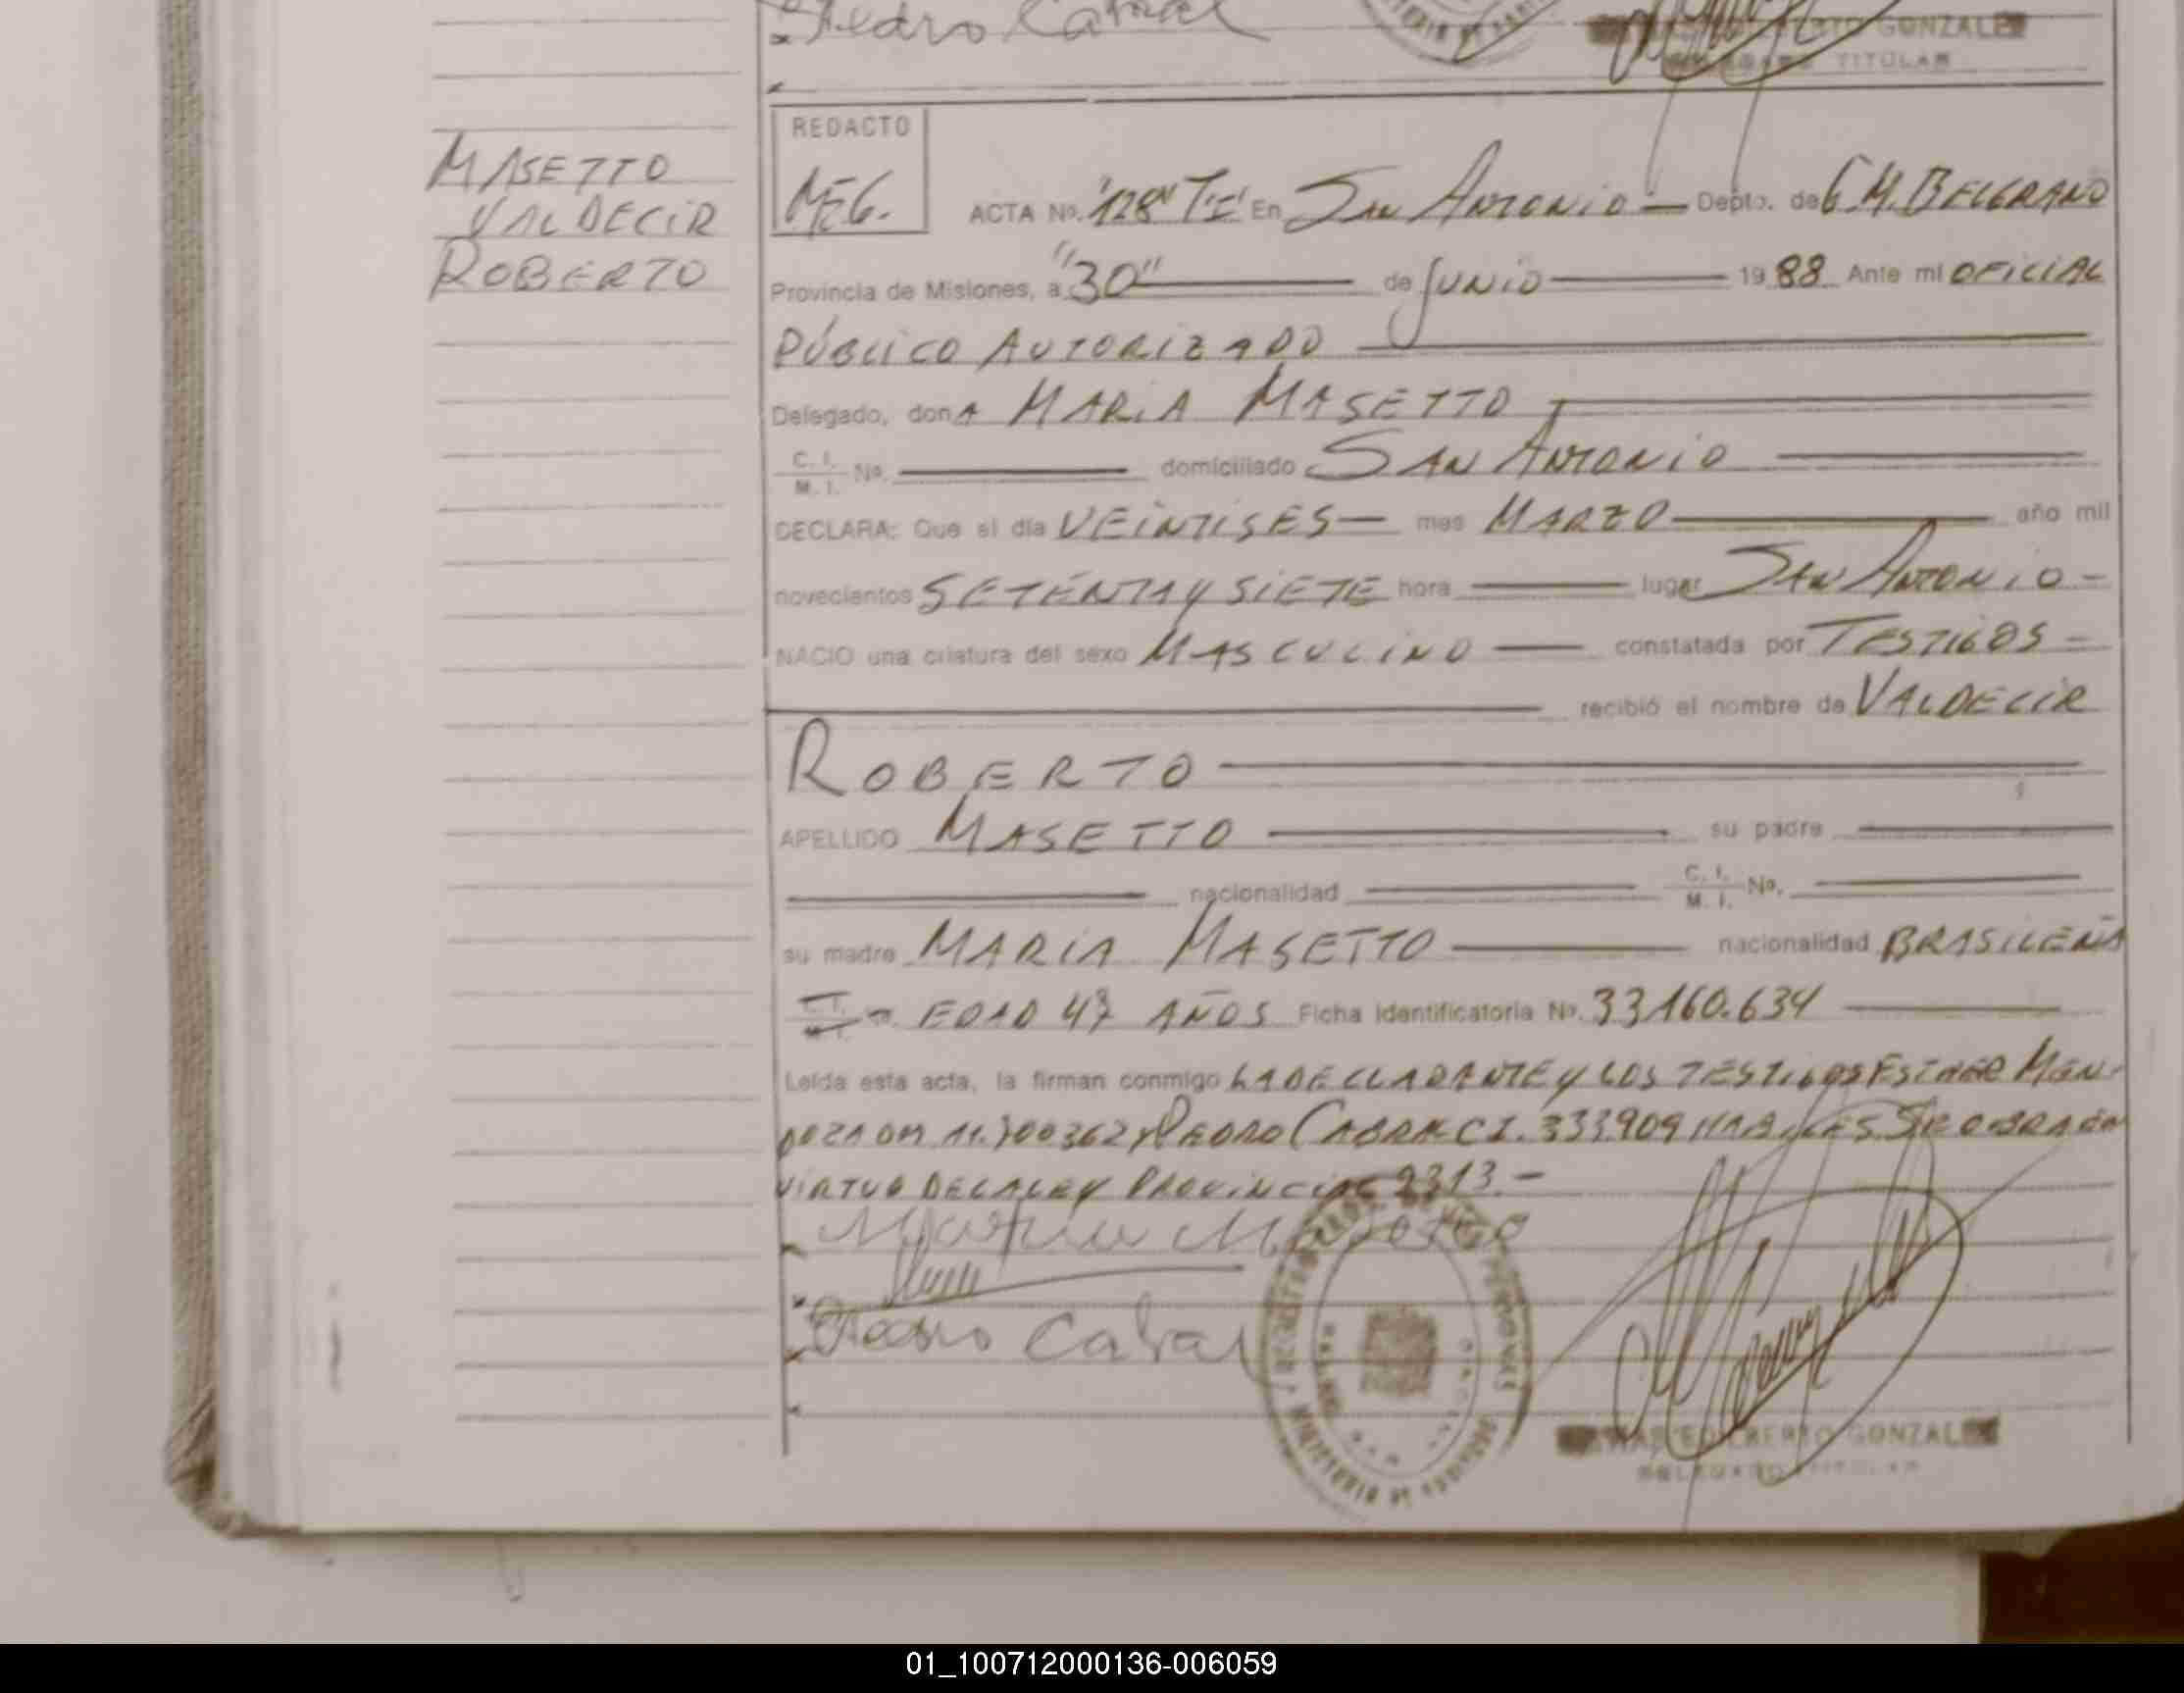 Pedro Cabral
GONZALEZ
TITULAR
MASETTO
VALDECIR
ROBERTO
REDACTO
MEG.
ACTA No. "128" T:I En San Antonio - Depto. de G.M. BELGRANO
Provincia de Misiones, a "30" de JUNIO 1988 Ante mi OFICIAL
PÚBLICO AUTORIZADO
Delegado, donA MARIA MASETTO
C. I. M. I. No. domiciliado SAN ANTONIO
DECLARA: Que el dia VEINTISES mes MARZO año mil
novecientos SETENTA y SIETE hora lugar SAN ANTONIO
NACIO una criatura del sexo MASCULINO constatada por TESTIGOS
recibió el nombre de VALDECIR
ROBERTO
APELLIDO MASETTO su padre
nacionalidad C. I. M. I. No.
su madre MARIA MASETTO nacionalidad BRASILEÑA
C.I. M.I. EDAD 47 AÑOS Ficha Identificatoria No. 33.160.634
Leida esta acta, la firman conmigo LA DECLARANTE y LOS TESTIGOS ESTHER MEN-
DOZA DNI 11.700362 y PEDRO CABRAL CI. 333.909 HABILES SE OBRA EN
VIRTUD DE LA LEY PROVINCIAL 2313.-
Maria Masetto
Pedro Cabral
REGISTRO DE LAS PERSONAS
PROVINCIA DE MISIONES
ALBERTO GONZALEZ
DELEGADO TITULAR
01_100712000136-006059